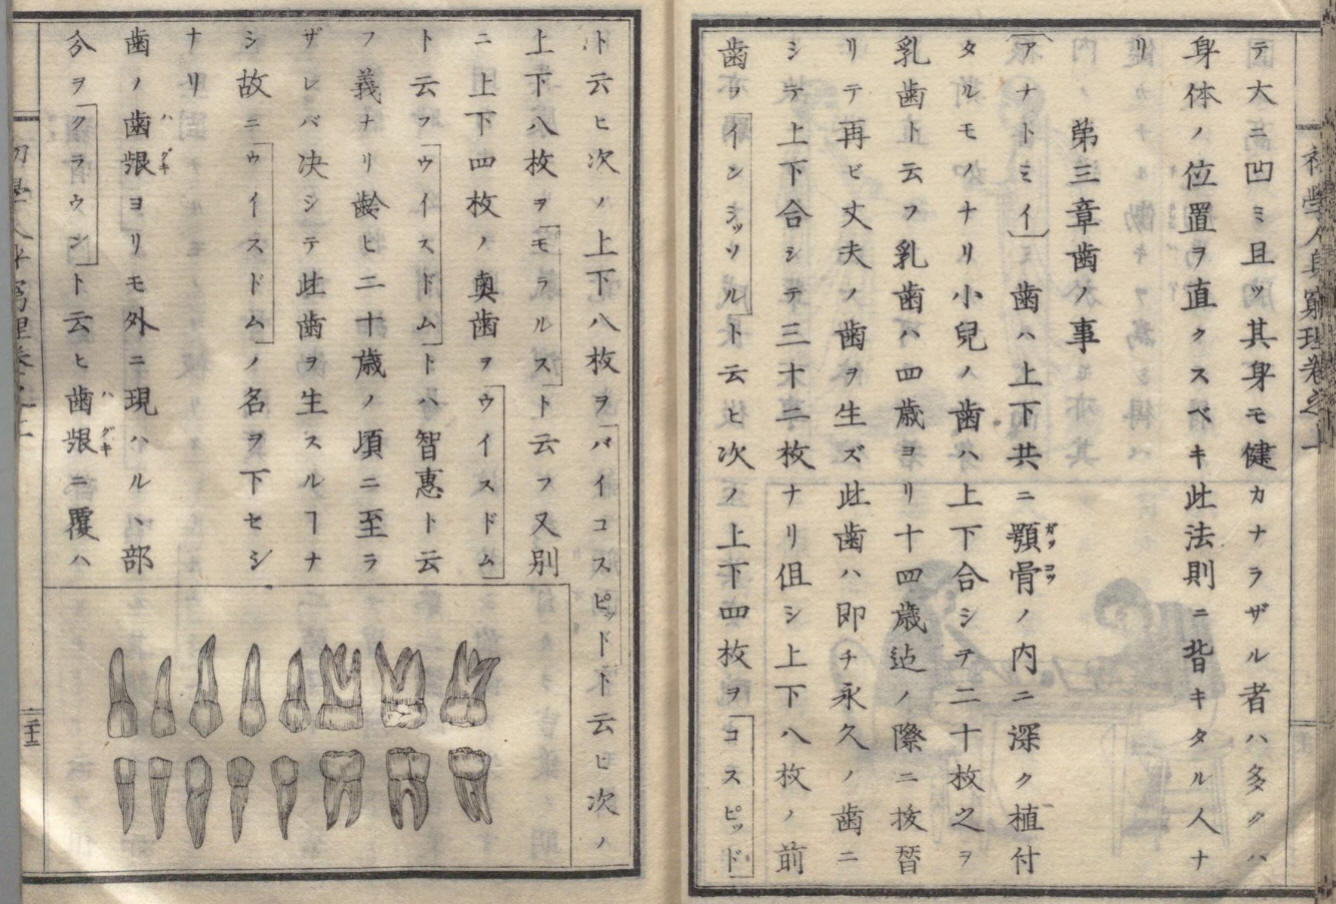 初學人身窮理卷之上
テ大ニ凹ミ且ツ其身モ健カナラザル者ハ多クハ
身体ノ位置ヲ直クスベキ此法則ニ背キタル人ナ
リ
第三章歯ノ事
〔アナトミイ〕歯ハ上下共ニ顎骨ノ内ニ深ク植付
ガクコツ
タルモノナリ小兒ノ歯ハ上下合シテ二十枚之ヲ
乳歯ト云フ乳歯ハ四歳ヨリ十四歳迠ノ際ニ抜替
リテ再ビ丈夫ノ歯ヲ生ズ此歯ハ即チ永久ノ歯ニ
シテ上下合シテ三十二枚ナリ但シ上下八枚ノ前
歯ヲ「インシッソル」ト云ヒ次ノ上下四枚ヲ「コスピッド」
ト云ヒ次ノ上下八枚ヲ「バイコスピッド」ト云ヒ次ノ
上下八枚ヲ「モラルス」ト云フ又別
ニ上下四枚ノ奥歯ヲ「ウイスドム」
ト云フ「ウイスドム」トハ智惠ト云
フ義ナリ齢ヒ二十歳ノ頃ニ至ラ
ザレバ决シテ此歯ヲ生スルヿナ
シ故ニ「ウイスドム」ノ名ヲ下セシ
ナリ
歯ノ歯齦ヨリモ外ニ現ハルヽ部
ハグキ
分ヲ「クラウン」ト云ヒ歯齦ニ覆ハ
ハグキ
二十三